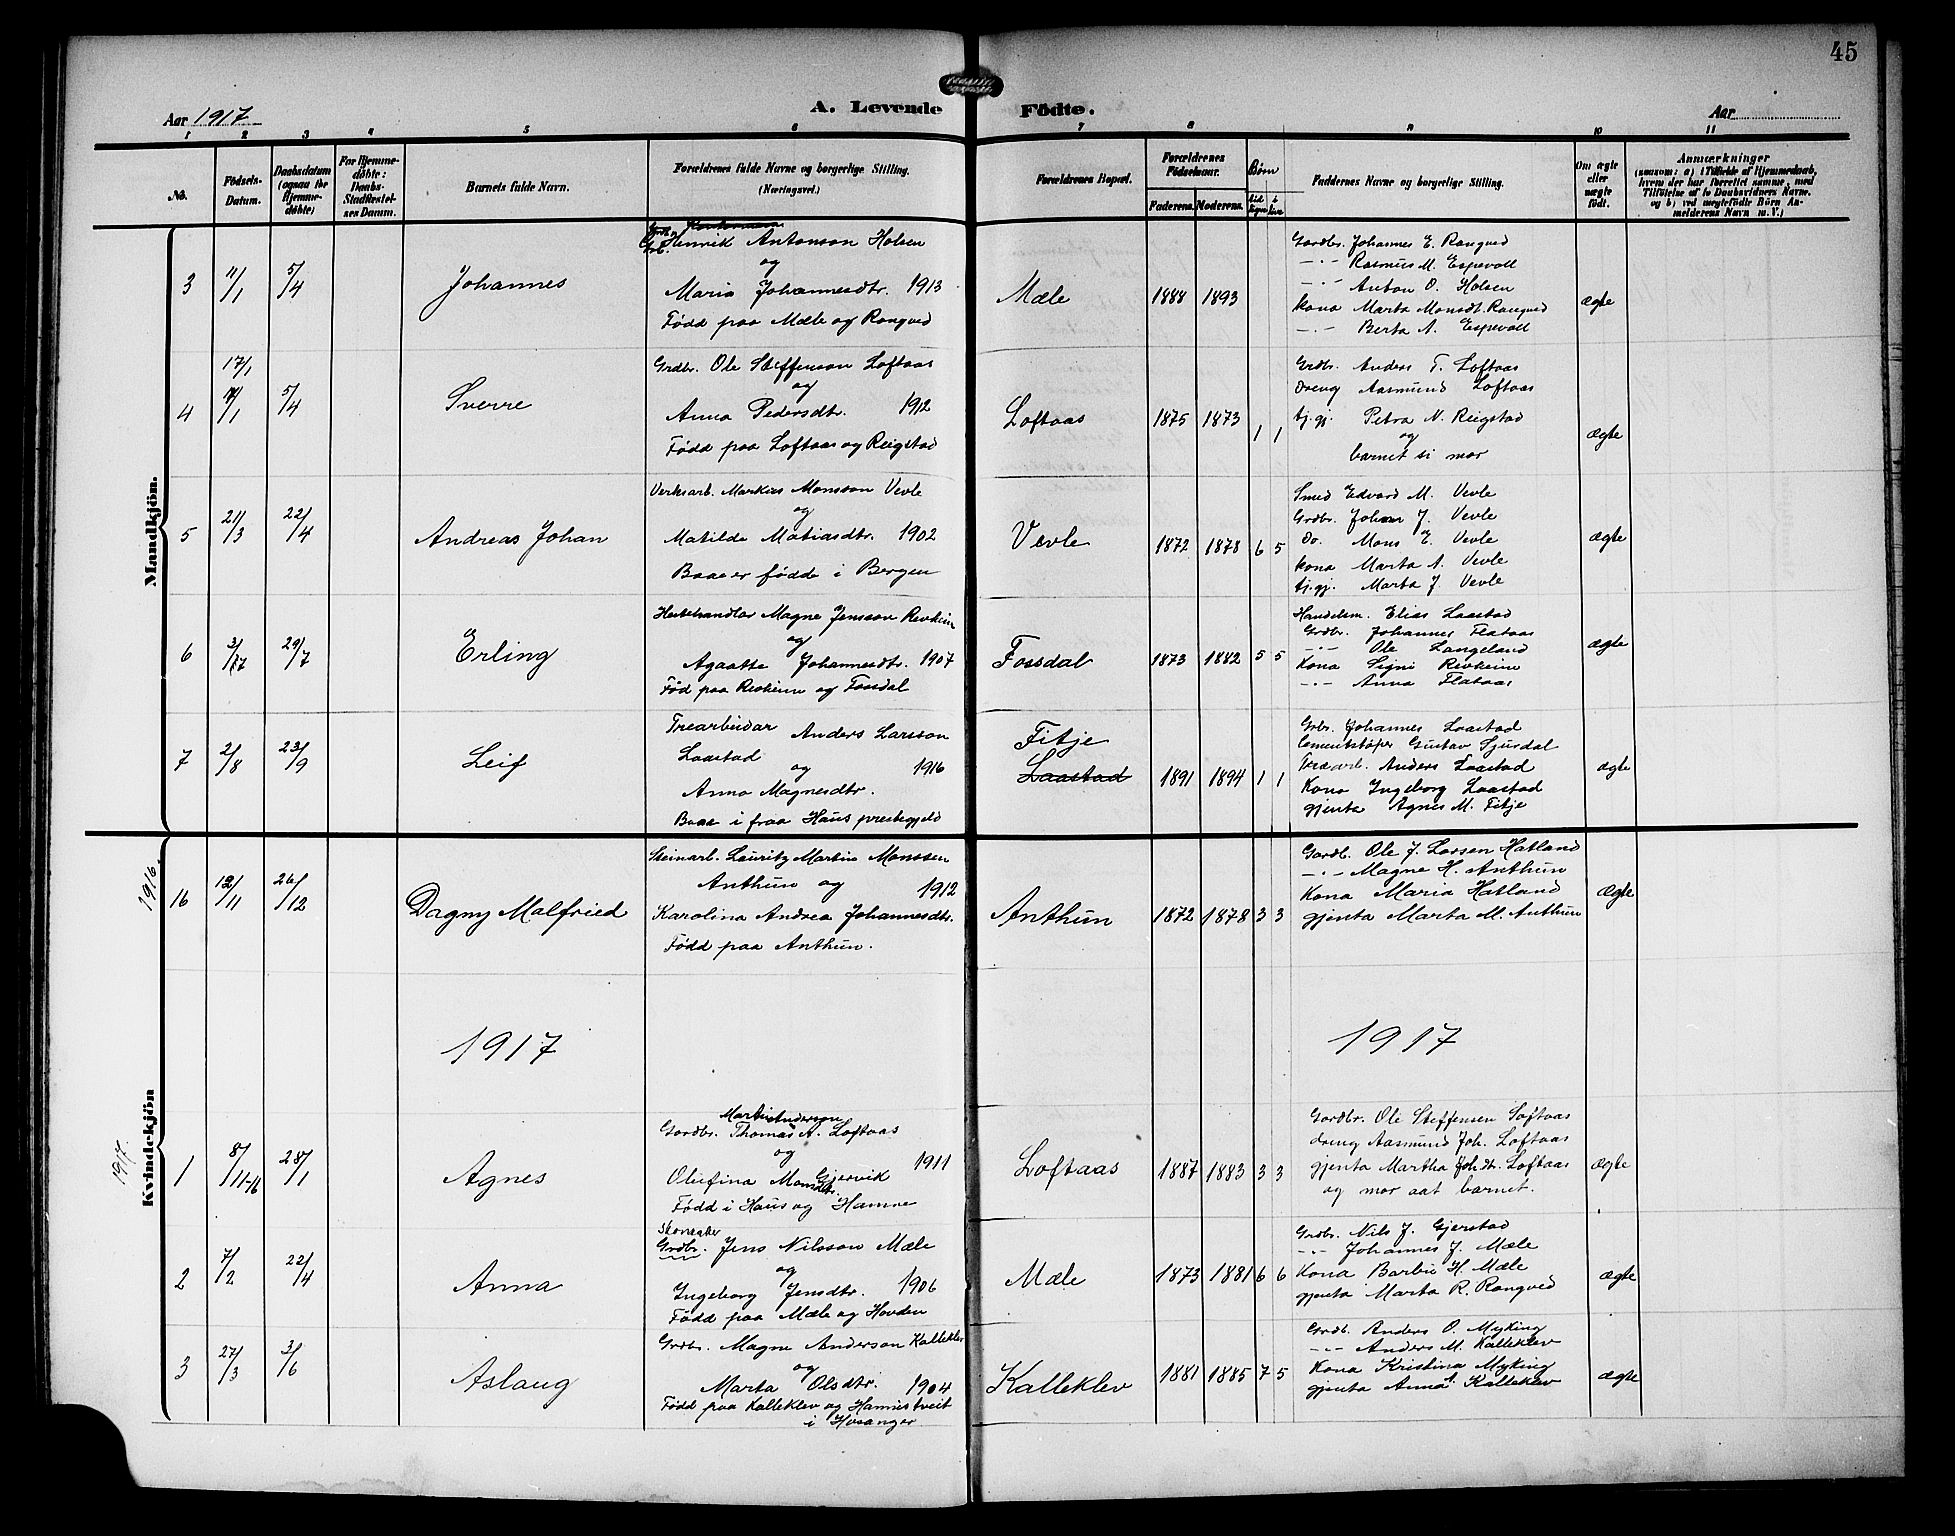 45
A. Levende Födte.
Aar 1917
Aar
1 2 3 4 5 6 7 8 9 10 11
No.
Födsels-Datum.
Daabsdatum (ogsaa for Hjemmedöbte)
For Hjemmedöbte: Daabs-Stadfæstelses Datum.
Barnets fulde Navn.
Forældrenes fulde Navne og borgerlige Stilling. (Næringsvei.)
Forældrenes Bopæl.
Forældrenes Födselsaar.
Faderens. Moderens.
Börn
Faddernes Navne og borgerlig Stilling.
Om ægte eller uægte födt.
Anmærkninger
Mandkjön.
3 11/1 5/4 Johannes
Henrik Antonson Holsen
og
Maria Johannesdtr. 1913
Född paa Mæle og Rongved
Mæle 1888 1893
Gardbr. Johannes E. Rongved
-"- Rasmus M. Espevoll
-"- Anton O. Holsen
Kona Marta Monsdt. Rongved
-"- Berta A. Espevoll
ægte
17/1
4 5/4 Sverre
Grdbr. Ole Steffenson Loftaas
og
Anna Pedersdtr. 1912
Född paa Loftaas og Reigstad
Loftaas 1875 1873 1 1
Grdbr. Anders T. Loftaas
Dreng Aasmund Loftaas
tj.gj. Petra N. Reigstad
og
barnet si mor
ægte
5 21/3 22/4 Andreas Johan
Verksarb. Markus Monsson Vevle
og
Matilde Matiasdtr. 1902
Baae er födde i Bergen
Vevle 1872 1878 6 5
Smed Edvard M. Vevle
Grdbr. Johan J. Vevle
Do. Mons E. Vevle
Kona Marta A. Vevle
tj.gj. Marta J. Vevle
ægte
6 3/7 29/7 Erling
Hestehandlar Magne Jensson Revheim
og
Agaatte Johannesdtr. 1907
Föd paa Revheim og Fossdal
Fossdal 1873 1882 5 5
Handelsm. Elias Laastad
Grdbr. Johannes Flataas
-"- Ole Langeland
Kona Signi Revheim
-"- Anna Flataas
ægte
7 2/8 23/9 Leif
Trearbeidar Anders Larsson
Laastad
og 1916
Anna Magnesdtr.
Baae i fraa Haus prestegjeld
Fitje
Laastad 1891 1894 1 1
Grbr. Johannes Laastad
Cementstöper Gustav Sjusdal
Trearb. Anders Laastad
Kona Ingeborg Laastad
gjenta Agnes M. Fitje
ægte
1916.
16 12/11 26/12 Dagny Malfried
Steinarb. Lauritz Martin Monssen
Anthun og 1912
Karolina Andrea Johannesdtr.
Född paa Anthun.
Anthun 1872 1878 3 3
Gardb. Ole J. Larsen Hatland
-"- Magne H. Anthun
Kona Maria Hatland
gjenta Marta M. Anthun
ægte
1917 1917
1917.
Kvindekjön
1 8/11-16 28/1 Agnes
Martin Anderson
Gardbr. Thomas A. Loftaas
og
Olufina Monsdtr. Gjervik 1911
Född i Haus og Hamne
Loftaas 1887 1883 3 3
Gardbr. Ole Steffensen Loftaas
dreng Aasmund Joh. Loftaas
gjenta Martha Joh.dtr. Loftaas
og mor aat barnet.
ægte
2 7/2 22/4 Anna
Skomaker
Grdbr. Jens Nilsson Mæle
og
Ingeborg Jensdtr. 1906
Född paa Mæle og Hovden
Mæle 1873 1881 6 6
Grdbr. Nils J. Gjerstad
-"- Johannes J. Mæle
Kona Barbu H. Mæle
gjenta Marta R. Rongved
ægte
3 27/3 3/6 Aslaug
Grdbr. Magne Anderson Kalleklev
og
Marta Olsdtr. 1904
Född paa Kalleklev og Hannistveit
i Hosanger
Kalleklev 1881 1885 7 5
Grdb. Anders O. Myking
-"- Anders M. Kalleklev
Kona Kristina Myking
gjenta Anna A. Kalleklev
ægte